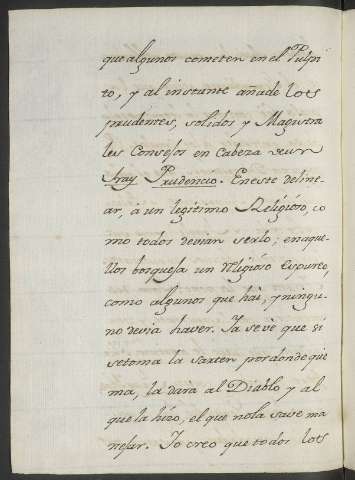 que algunos cometen en el Pulpi
to, y al instante añade lo(t)s
prudentes, solidos y Magistra
les Consejos en Cabeza de un
Fray Prudencio. En este deline
ar, á un legitimo Religioso, co
mo todos devian serlo; en aque
llos bosqueja un religioso espureo,
como algunos que hai, y ningu
no devia haver. Ya se vé que si
se toma la sarten por donde que
ma, la dara al Diablo y al
que la hizo, el que no la save ma
nejar. Yo creo que todos los